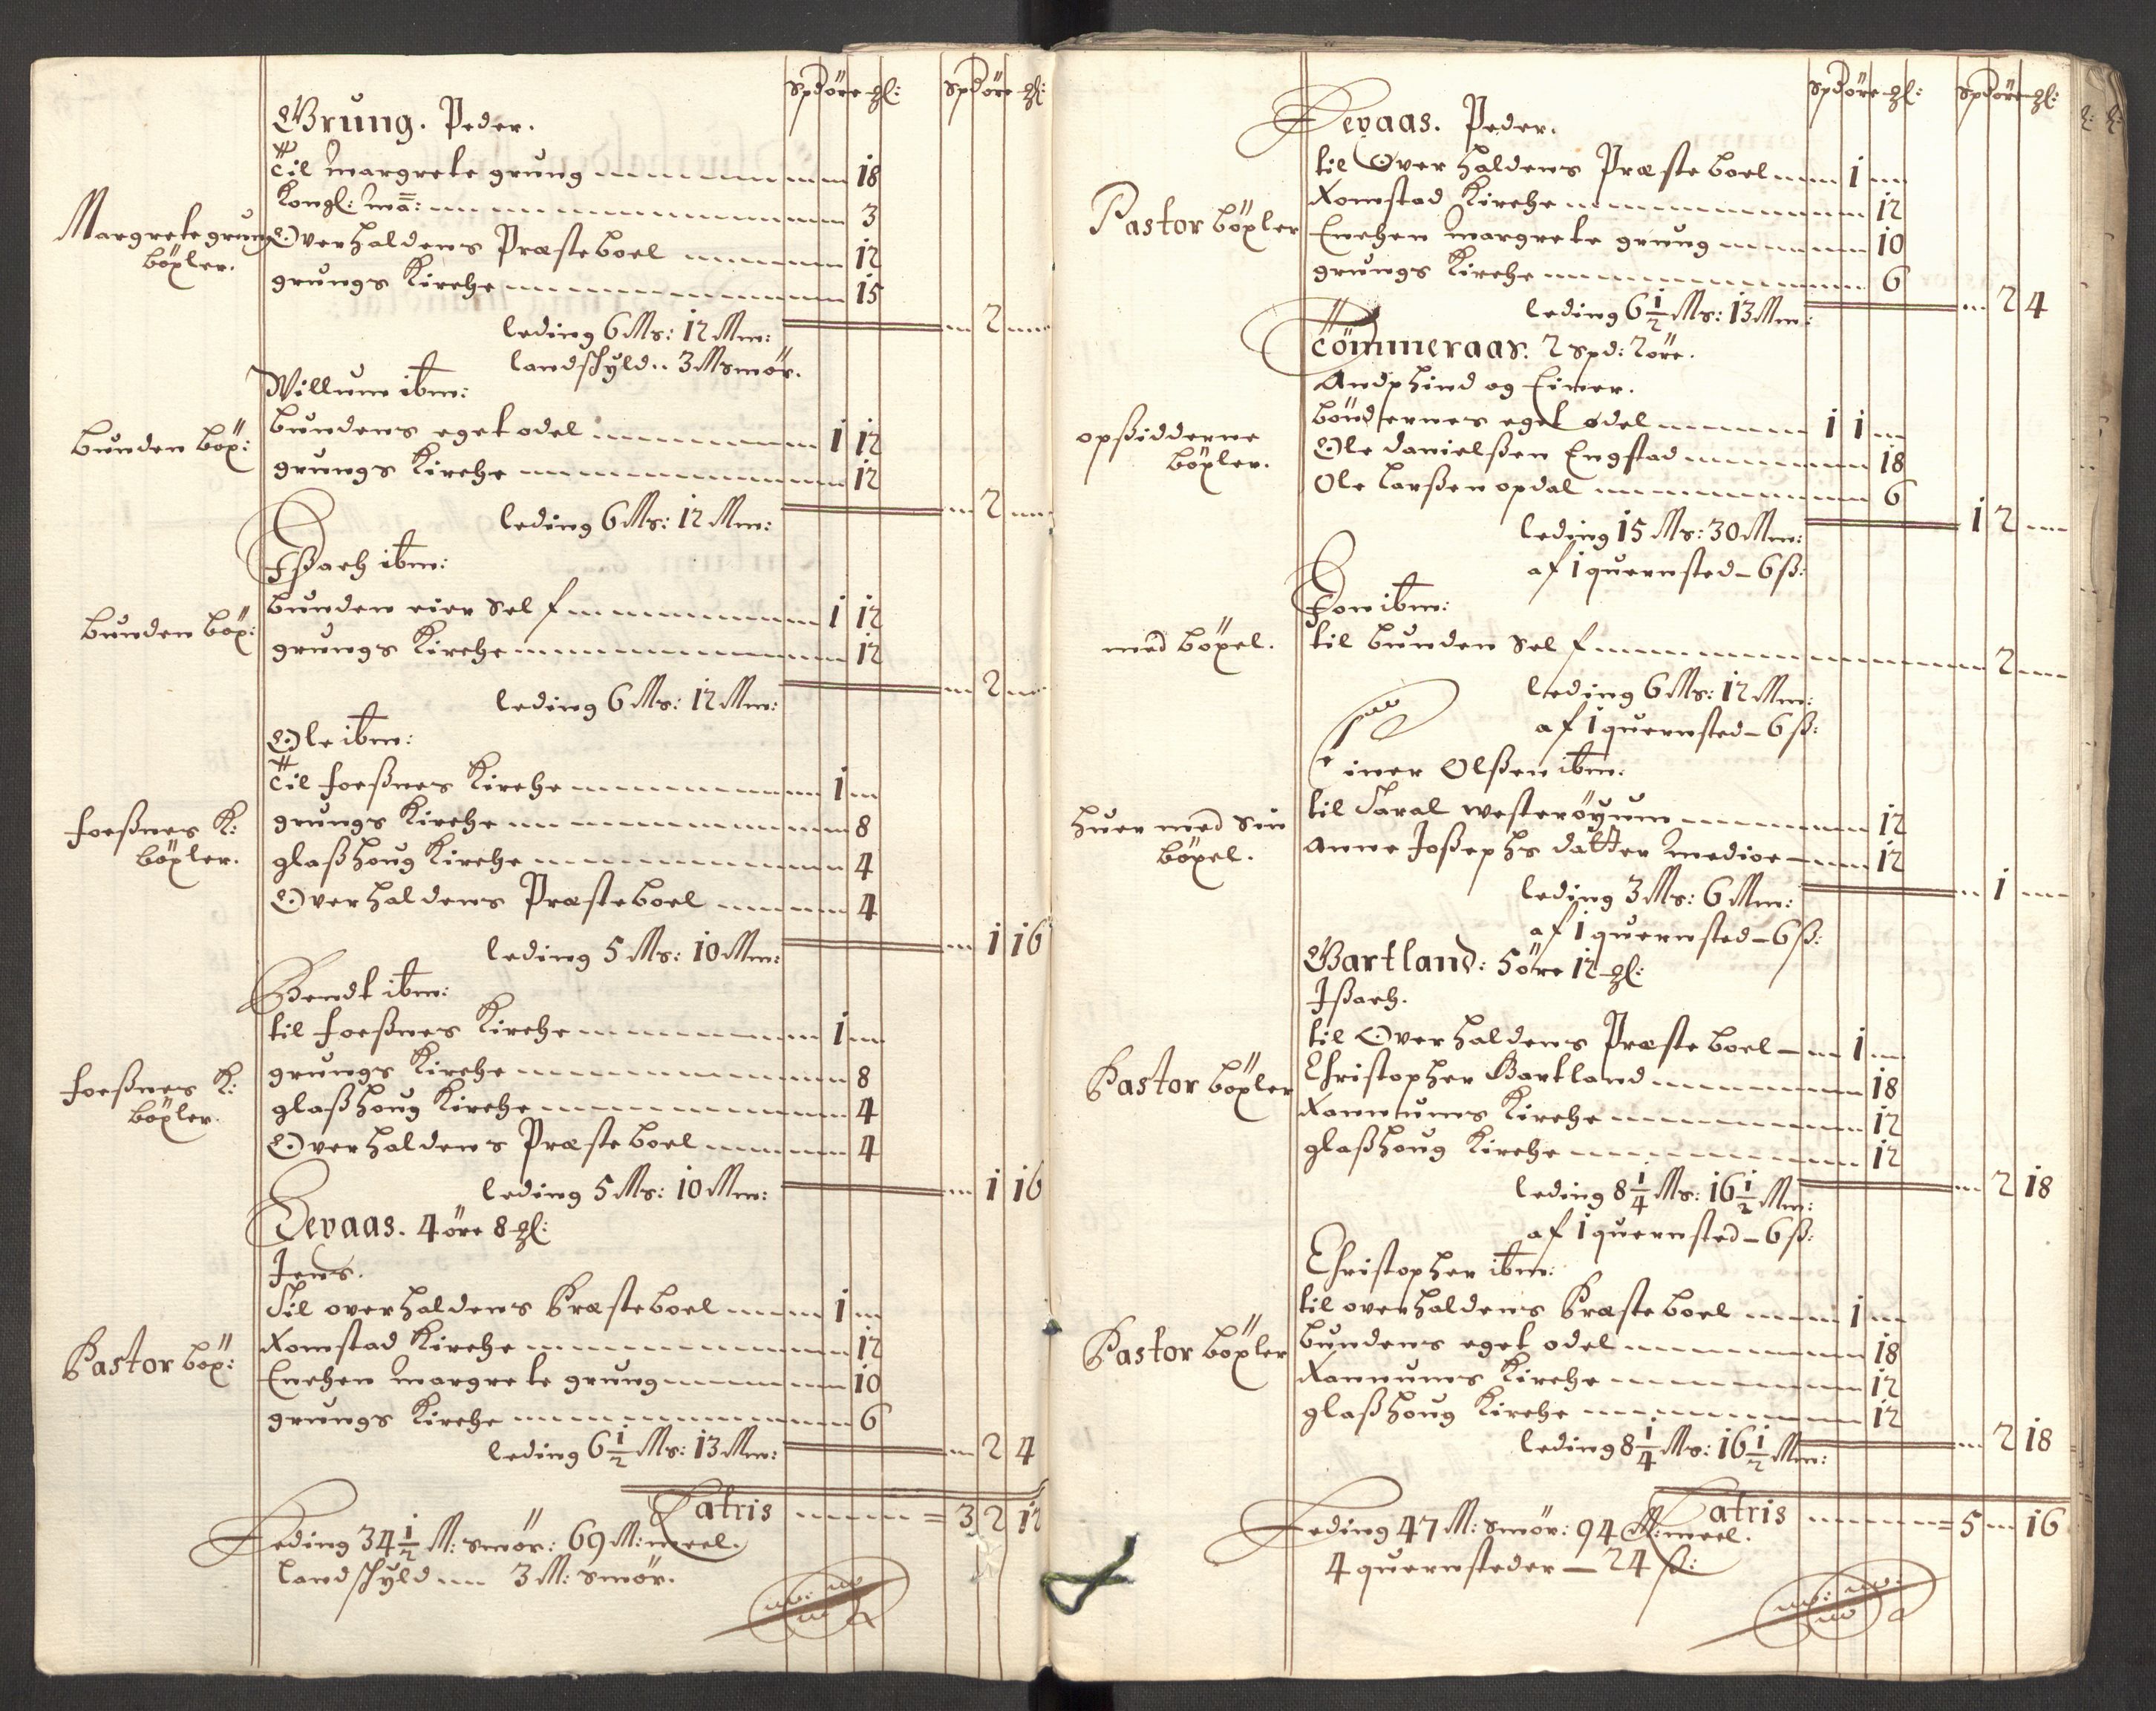 spd öre ₰l: spd öre ₰l:
Grung. Peder.
Til Margrete grung 18
Kongl: Ma: 3
Margrete grung Overhaldens Præsteboel 12
böxler.
grungs Kirche 15
leding 6 Ms: 12 Mm: 2
landschyld.. 3 M smör.
Willum ibm:
bundens eget odel 1 12
Bunden böx:
grungs Kirche 12
leding 6 Ms: 12 Mm: 2
Ißach ibm:
bunden eier self 1 12
Bunden böx:
grungs Kirche 12
leding 6 Ms: 12 Mm: 2
Ole ibm:
Til foeßnes Kirche 1
foeßnes K: grungs Kirche 8
böxler. glaßhoug Kirche 4
Overhaldens Præsteboel 4
leding 5 Ms: 10 Mm: 1 16
Bendt ibm:
til foeßnes Kirche 1
foeßnes K: grungs Kirche 8
böxler. glaßhoug Kirche 4
Overhaldens Præsteboel 4
leding 5 Ms: 10 Mm: 1 16
Devaas. 4 öre 8 ₰l:
Jens.
Til overhaldens Præsteboel 1
Pastor böx: Xomstad Kirche 12
Enchen Margrete grung 10
grungs Kirche 6
leding 6 1/2 Ms: 13 Mm: 2 4
Latris = 3 2 12
Leding 34 1/2 M: smör: 69 M: meel.
Landschyld 3 M: smör.
spd öre ₰l: spd öre ₰l:
Devaas. Peder.
til Overhaldens Præsteboel 1
Pastor böxler Xomstad Kirche 12
Enchen Margrete grung 10
grungs Kirche 6
leding 6 1/2 Ms: 13 Mm: 2 4
Tömmeraas. 2 spd: 2 öre.
Andphind og Einer.
böndernes eget odel 1 1
opßidderne Ole Danielßen Engstad 18
böxler. Ole Larßen opdal 6
leding 15 Ms: 30 Mm: 1 2
af 1 quernsted - 6 ß:
Jon ibm:
med böxel. til bunden self 2
leding 6 Ms: 12 Mm:
af 1 quernsted - 6 ß:
Einer Olßen ibm:
til Taral Westeröyum 12
huer med sin
böxel. Anne Joßephs datter Medioe 12
leding 3 Ms: 6 Mm: 1
af 1 quernsted - 6 ß:
Gartland: 5 öre 12 ₰l:
Ißach.
til Overhaldens Præsteboel 1
Pastor böxler Christopher Gartland 18
Xannums Kirche 12
glaßhoug Kirche 12
leding 8 1/4 Ms: 16 1/2 Mm: 2 18
af 1 quernsted - 6 ß:
Christopher ibm:
til overhaldens Præsteboel 1
Pastor böxler bundens eget odel 18
Xannums Kirche 12
glaßhoug Kirche 12
leding 8 1/4 Ms: 16 1/2 Mm: 2 18
Latris = 5 16
Leding 47 M: smör: 94 M: meel.
4 quernsteder - 24 ß: